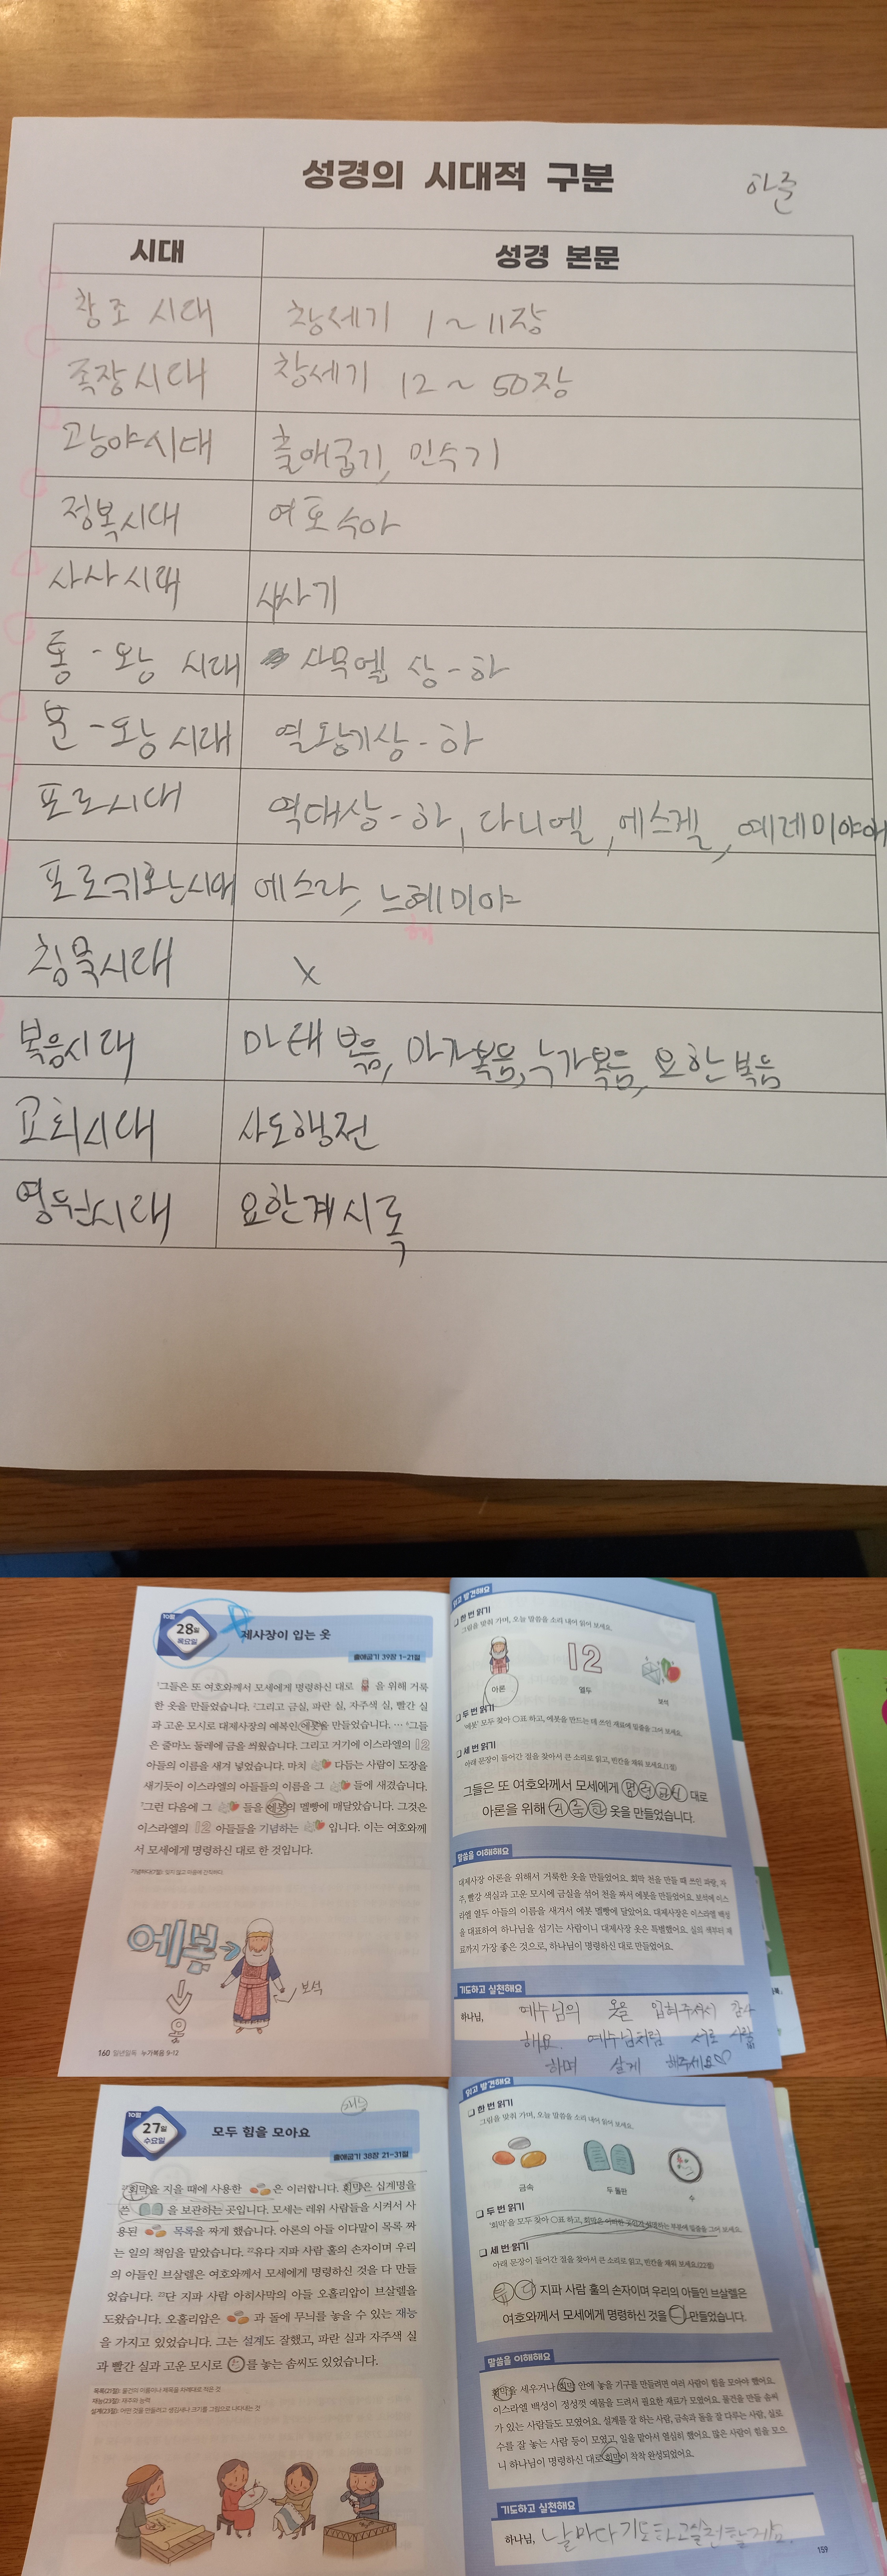 성경의 시대적 구분
하준
시대 성경 본문
창조 시대 창세기 1~11장
족장시대 창세기 12~50장
광야시대 출애굽기, 민수기
정복시대 여호수아
사사시대 사사기
통-왕 시대 사무엘 상-하
분-왕 시대 열왕기상-하
포로시대 역대상-하, 다니엘, 에스겔, 예레미야애
포로귀환시대 에스라, 느헤미야
헤
침묵시대 X
복음시대 마태복음, 마가복음, 누가복음, 요한복음
교회시대 사도행전
영원시대 요한계시록
10월
28일
목요일
제사장이 입는 옷
출애굽기 39장 1-21절
1그들은 또 여호와께서 모세에게 명령하신 대로 을 위해 거룩
한 옷을 만들었습니다. 2그리고 금실, 파란 실, 자주색 실, 빨간 실
과 고운 모시로 대제사장의 예복인 에봇을 만들었습니다. … 6그들
은 줄마노 둘레에 금을 씌웠습니다. 그리고 거기에 이스라엘의 12
아들의 이름을 새겨 넣었습니다. 마치 다듬는 사람이 도장을
새기듯이 이스라엘의 아들들의 이름을 그 들에 새겼습니다.
7그런 다음에 그 들을 에봇의 멜빵에 매달았습니다. 그것은
이스라엘의 12 아들들을 기념하는 입니다. 이는 여호와께
서 모세에게 명령하신 대로 한 것입니다.
기념하다(7절): 잊지 않고 마음에 간직하다.
에봇
보석
옷
160 일년일독·누가복음 9-12
읽고 발견해요
한 번 읽기
그림을 맞춰 가며, 오늘 말씀을 소리 내어 읽어 보세요.
12
아론 열두 보석
두 번 읽기
'에봇' 모두 찾아 ○표 하고, 에봇을 만드는 데 쓰인 재료에 밑줄을 그어 보세요.
세 번 읽기
아래 문장이 들어간 절을 찾아서 큰 소리로 읽고, 빈칸을 채워 보세요.(1절)
그들은 또 여호와께서 모세에게 명령하신 대로
아론을 위해 거룩한 옷을 만들었습니다.
말씀을 이해해요
대제사장 아론을 위해서 거룩한 옷을 만들었어요. 회막 천을 만들 때 쓰인 파랑, 자
주, 빨강 색실과 고운 모시에 금실을 섞어 천을 짜서 에봇을 만들었어요. 보석에 이스
라엘 열두 아들의 이름을 새겨서 에봇 멜빵에 달았어요. 대제사장은 이스라엘 백성
을 대표하여 하나님을 섬기는 사람이니 대제사장 옷은 특별했어요. 실의 색부터 재
료까지 가장 좋은 것으로, 하나님이 명령하신 대로 만들었어요.
기도하고 실천해요
하나님, 예수님의 옷을 입혀주셔서 감사
해요. 예수님처럼 서로 사랑
하며 살게 해주세요♡
10월
27일
수요일
모두 힘을 모아요
재능
출애굽기 38장 21-31절
21회막을 지을 때에 사용한 은 이러합니다. 회막은 십계명을
쓴 을 보관하는 곳입니다. 모세는 레위 사람들을 시켜서 사
용된 목록을 짜게 했습니다. 아론의 아들 이다말이 목록 짜
는 일의 책임을 맡았습니다. 22유다 지파 사람 훌의 손자이며 우리
의 아들인 브살렐은 여호와께서 모세에게 명령하신 것을 다 만들
었습니다. 23단 지파 사람 아히사막의 아들 오홀리압이 브살렐을
도왔습니다. 오홀리압은 과 돌에 무늬를 놓을 수 있는 재능
을 가지고 있었습니다. 그는 설계도 잘했고, 파란 실과 자주색 실
과 빨간 실과 고운 모시로 를 놓는 솜씨도 있었습니다.
목록(21절): 물건의 이름이나 제목을 차례대로 적은 것
재능(23절): 재주와 능력
설계(23절): 어떤 것을 만들려고 생김새나 크기를 그림으로 나타내는 것
읽고 발견해요
한 번 읽기
그림을 맞춰 가며, 오늘 말씀을 소리 내어 읽어 보세요.
금속 두 돌판 수
두 번 읽기
'회막'을 모두 찾아 ○표 하고, 회막은 어떠한 곳인가 설명하는 부분에 밑줄을 그어 보세요.
세 번 읽기
아래 문장이 들어간 절을 찾아서 큰 소리로 읽고, 빈칸을 채워 보세요.(22절)
유다 지파 사람 훌의 손자이며 우리의 아들인 브살렐은
여호와께서 모세에게 명령하신 것을 다 만들었습니다.
말씀을 이해해요
회막을 세우거나 회막 안에 놓을 기구를 만들려면 여러 사람이 힘을 모아야 했어요.
이스라엘 백성이 정성껏 예물을 드려서 필요한 재료가 모였어요. 물건을 만들 솜씨
가 있는 사람들도 모였어요. 설계를 잘 하는 사람, 금속과 돌을 잘 다루는 사람, 실로
수를 잘 놓는 사람 등이 모였고, 일을 맡아서 열심히 했어요. 많은 사람이 힘을 모으
니 하나님이 명령하신 대로 회막이 착착 완성되었어요.
기도하고 실천해요
하나님, 날마다 기도하고 실천할게요.
159